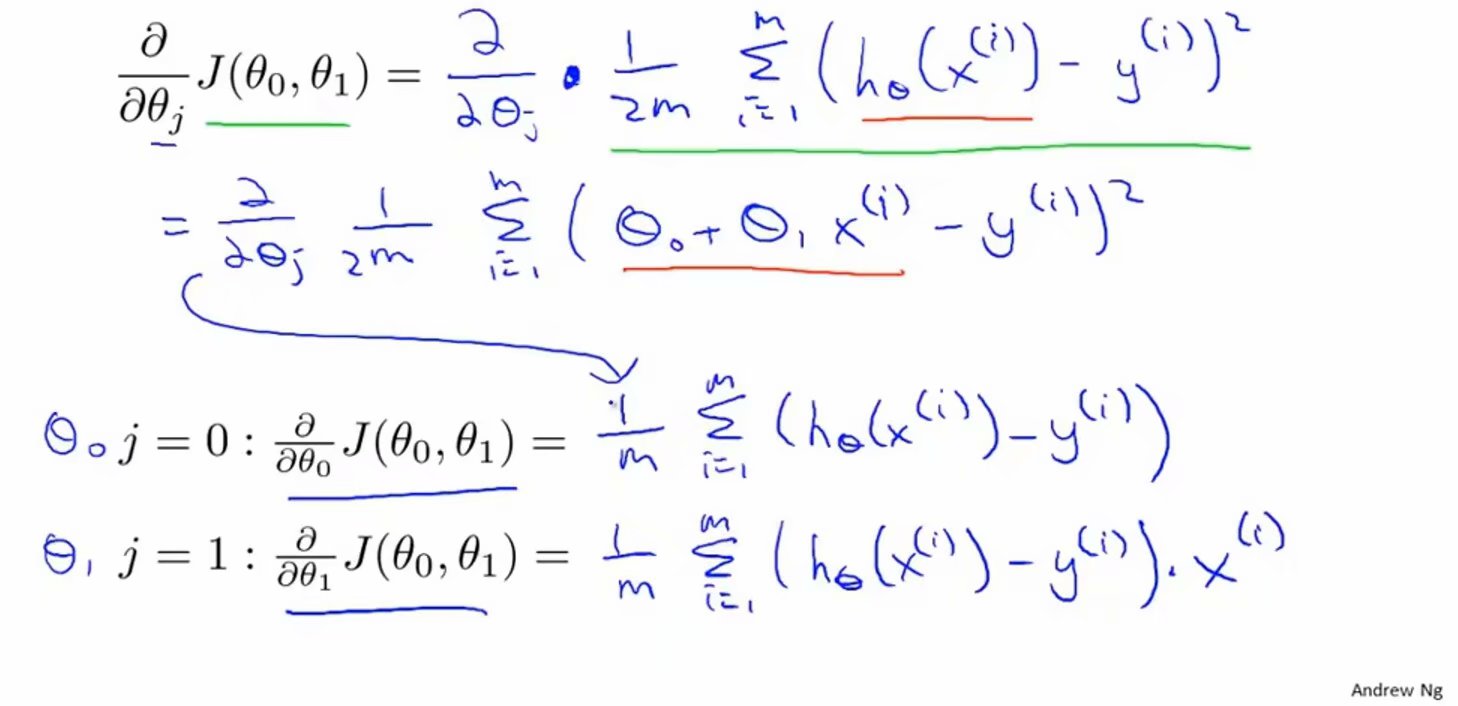 ∂/∂θ_j J(θ₀, θ₁) = ∂/∂θ_j · 1/2m Σ_{i=1}^{m} (h_θ(x^{(i)}) - y^{(i)})²
= ∂/∂θ_j 1/2m Σ_{i=1}^{m} (θ₀ + θ₁ x^{(i)} - y^{(i)})²
θ₀ j = 0 : ∂/∂θ₀ J(θ₀, θ₁) = 1/m Σ_{i=1}^{m} (h_θ(x^{(i)}) - y^{(i)})
θ₁ j = 1 : ∂/∂θ₁ J(θ₀, θ₁) = 1/m Σ_{i=1}^{m} (h_θ(x^{(i)}) - y^{(i)}) · x^{(i)}
Andrew Ng